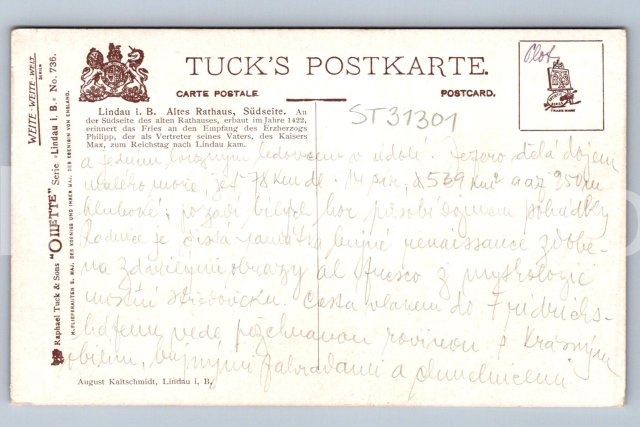 TUCK'S POSTKARTE.
CARTE POSTALE
POSTCARD.
Lindau i. B. Altes Rathaus, Südseite. An
der Südseite des alten Rathauses, erbaut im Jahre 1422,
erinnert das Fries an den Empfang des Erzherzogs
Philipp, der als Vertreter seines Vaters, des Kaisers
Max, zum Reichstag nach Lindau kam.
ST31301
TRADE MARK
a jedním ledovcem v údolí. Jezero dělá dojem
malého moře, je 78 km dl. 14 539 km² a až 250 m
hluboké; pozadí hor působí dojmem pohádky
Radnice je čistá památka renaissance zdobe-
na zdařilými obrazy al fresco z mythologie
Cesta vlakem do Friedrichs-
hafenu vede rovinou s krásným
obilím, bujnými zahradami a
August Kaltschmidt, Lindau i. B.
WEITE-WEITE-WELT
BERLIN
Raphael Tuck & Sons "OILETTE" Serie »Lindau i. B.« No. 736.
HOFLIEFERANTEN S. MAJ. DES KOENIGS UND IHRER MAJ. DER KOENIGIN VON ENGLAND.